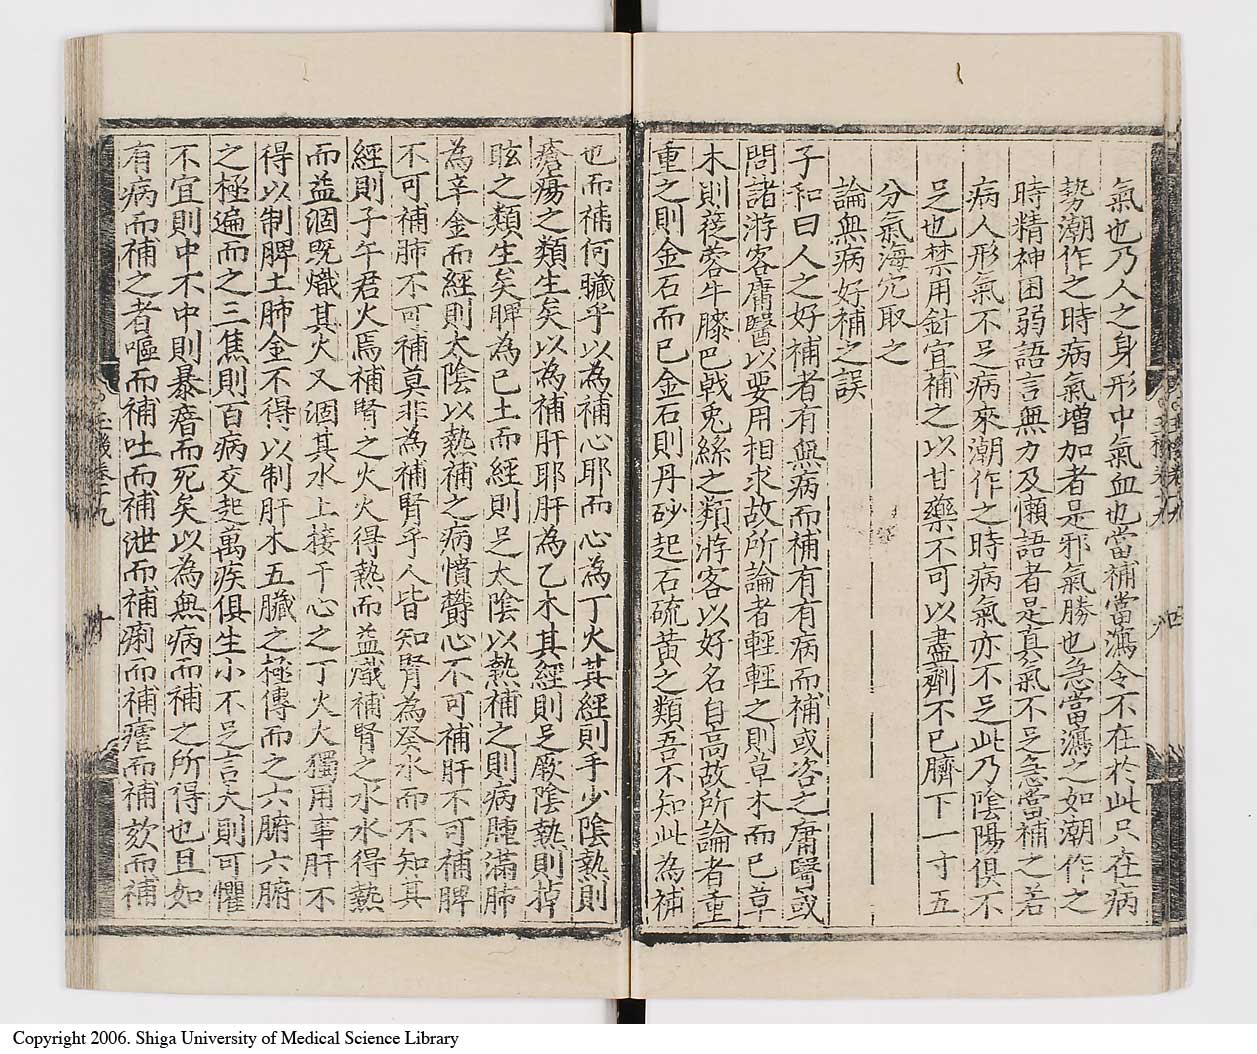 氣也乃人之身形中氣血也當補當瀉令不在於此只在病
勢潮作之時病氣增加者是邪氣勝也急當瀉之如潮作之
時精神困弱語言無力及懶語者是真氣不足急當補之若
病人形氣不足病來潮作之時病氣亦不足此乃陰陽俱不
足也禁用針宜補之以甘藥不可以盡劑不已臍下一寸五
分氣海穴取之
論無病好補之誤
子和曰人之好補者有無病而補有有病而補或咨之庸醫或
問諸游客庸醫以要用相求故所論者輕輕之則草木而已草
木則蓯蓉牛膝巴戟兎絲之類游客以好名自高故所論者重
重之則金石而已金石則丹砂起石硫黃之類吾不知此為補
也而補何臟乎以為補心耶而心為丁火其經則手少陰熱則
瘡瘍之類生矣以為補肝耶肝為乙木其經則足厥陰熱則掉
眩之類生矣脾為己土而經則足太陰以熱補之則病腫滿肺
為辛金而經則太陰以熱補之病憤鬱心不可補肝不可補脾
不可補肺不可補莫非為補腎乎人皆知腎為癸水而不知其
經則子午君火焉補腎之火火得熱而益熾補腎之水水得熱
而益涸既熾其火又涸其水上接于心之丁火火獨用事肝不
得以制脾土肺金不得以制肝木五臟之極傳而之六腑六腑
之極遍而之三焦則百病交起萬疾俱生小不足言大則可懼
不宜則中不中則暴瘖而死矣以為無病而補之所得也且如
有病而補之者嘔而補吐而補泄而補痢而補瘧而補欬而補
Copyright 2006. Shiga University of Medical Science Library